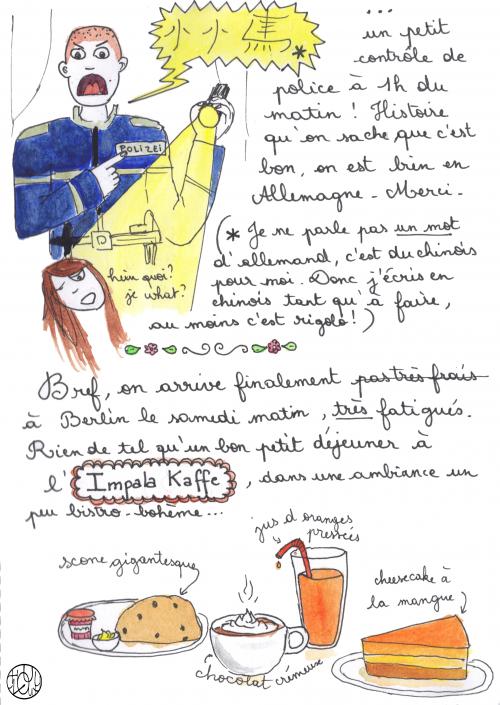 小小馬*
...
un petit
contrôle de
police à 1h du
matin ! Histoire
qu'on sache que c'est
bon, on est bien en
Allemagne - Merci -
POLIZEI
hein quoi?
je what?
(* Je ne parle pas un mot
d'allemand, c'est du chinois
pour moi. Donc j'écris en
chinois tant qu'à faire,
au moins c'est rigolo!)
Bref, on arrive finalement pas très frais
à Berlin le samedi matin, très fatigués.
Rien de tel qu'un bon petit déjeuner à
l'Impala Kaffe, dans une ambiance un
peu bistro-bohème...
jus d'oranges
pressées
scone gigantesque
cheesecake à
la mangue
chocolat crémeux